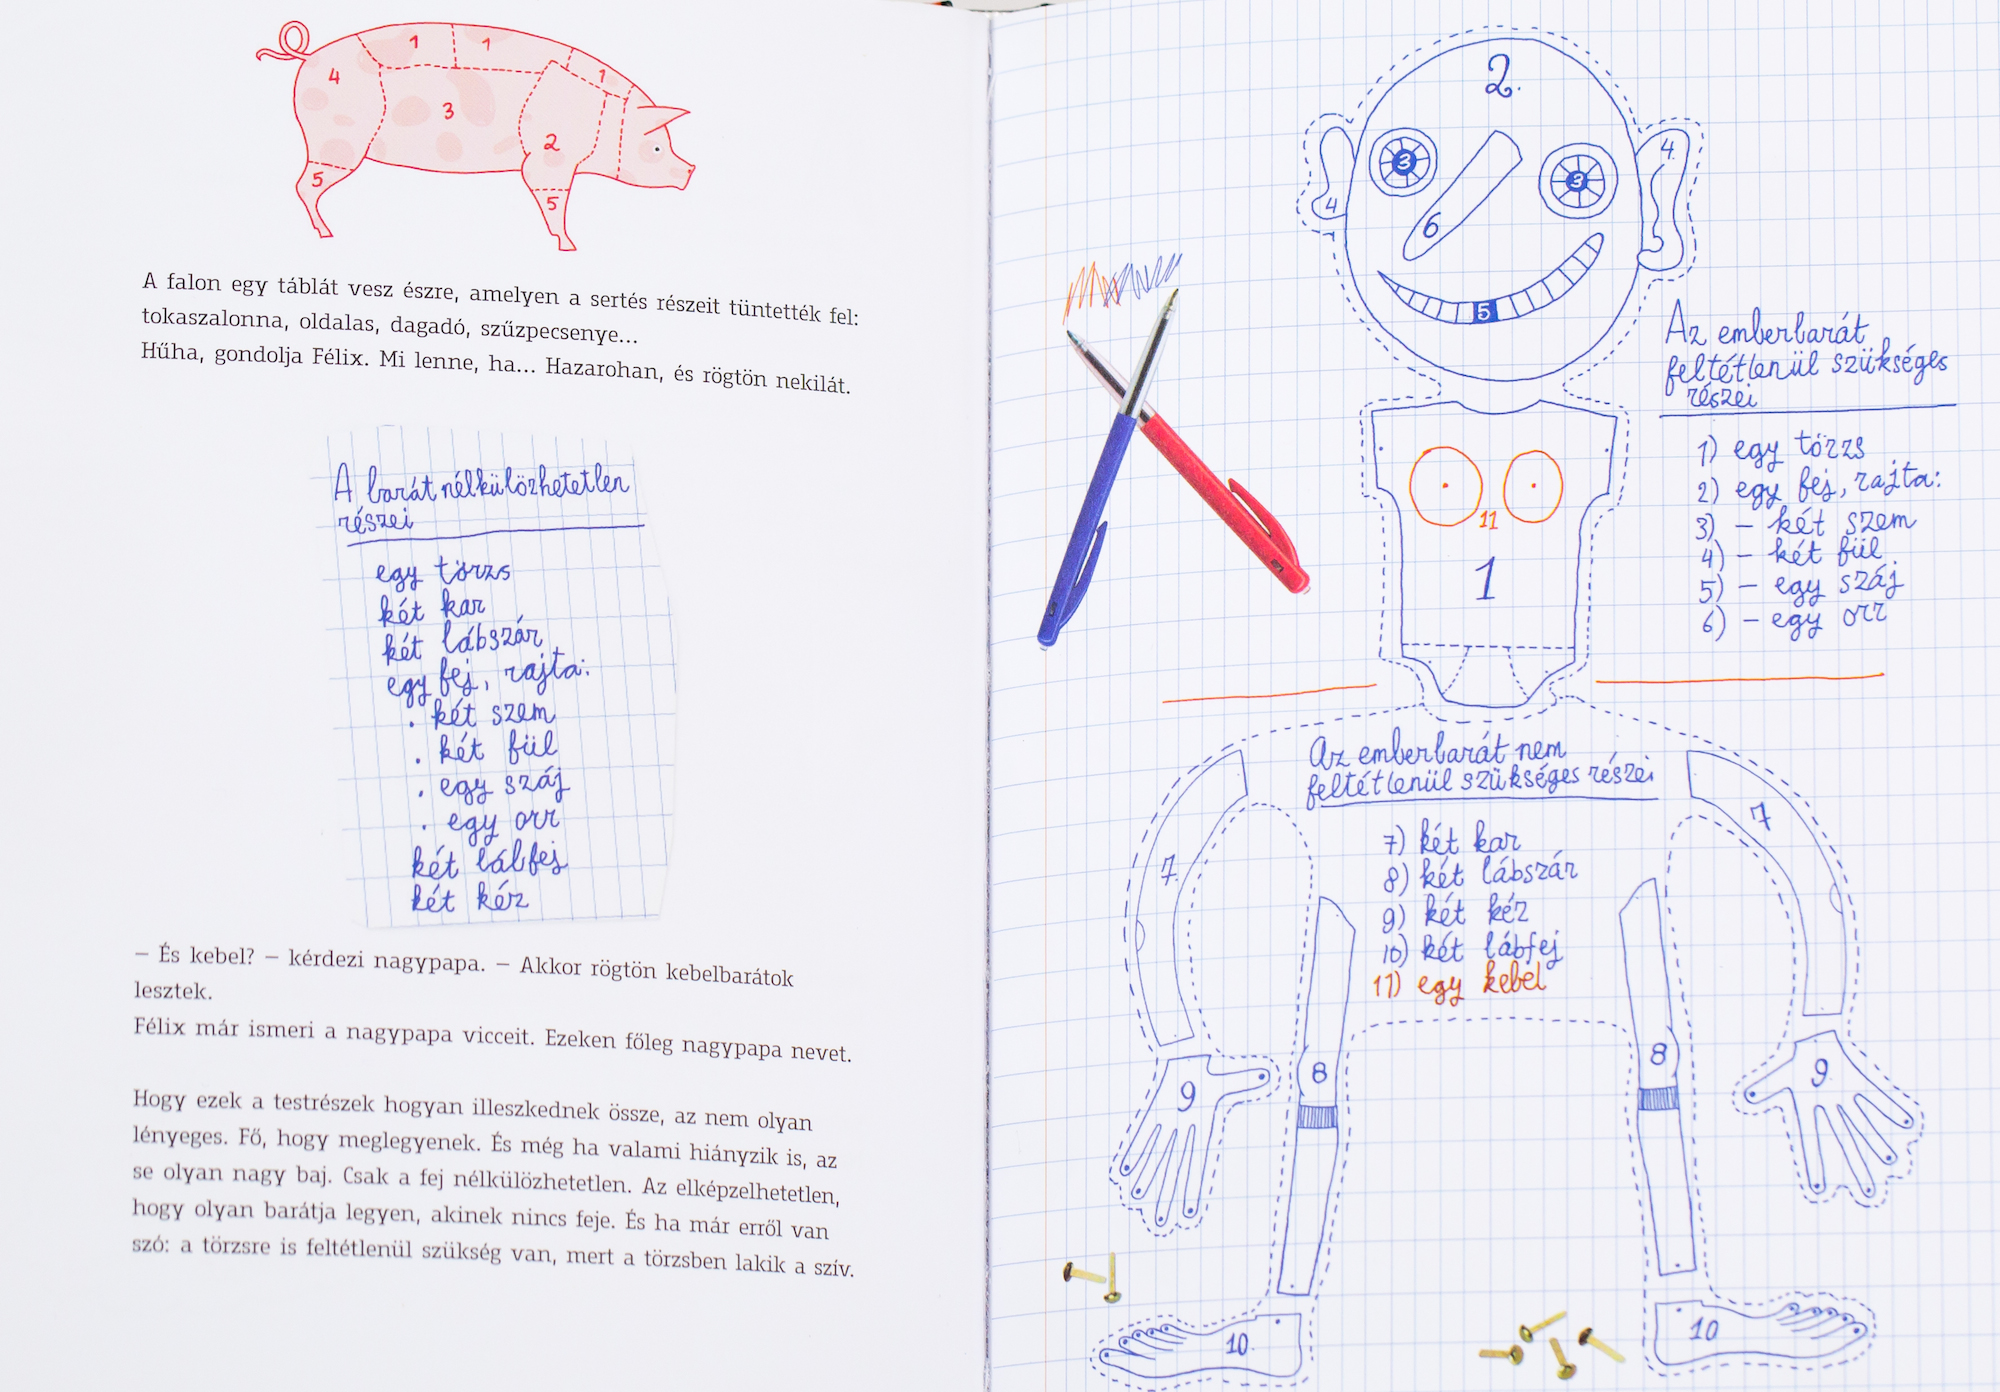 1
1
1
4
3
2
5
5
A falon egy táblát vesz észre, amelyen a sertés részeit tüntették fel:
tokaszalonna, oldalas, dagadó, szűzpecsenye...
Hűha, gondolja Félix. Mi lenne, ha... Hazarohan, és rögtön nekilát.
A barát nélkülözhetetlen
részei
egy törzs
két kar
két lábszár
egy fej, rajta:
. két szem
. két fül
. egy száj
. egy orr
két lábfej
két kéz
– És kebel? – kérdezi nagypapa. – Akkor rögtön kebelbarátok
lesztek.
Félix már ismeri a nagypapa vicceit. Ezeken főleg nagypapa nevet.
Hogy ezek a testrészek hogyan illeszkednek össze, az nem olyan
lényeges. Fő, hogy meglegyenek. És még ha valami hiányzik is, az
se olyan nagy baj. Csak a fej nélkülözhetetlen. Az elképzelhetetlen,
hogy olyan barátja legyen, akinek nincs feje. És ha már erről van
szó: a törzsre is feltétlenül szükség van, mert a törzsben lakik a szív.
2.
3
3
4
4.
6
5
11
1
Az emberbarát
feltétlenül szükséges
részei
1) egy törzs
2) egy fej, rajta:
3) – két szem
4) – két fül
5) – egy száj
6) – egy orr
Az emberbarát nem
feltétlenül szükséges részei
7) két kar
8) két lábszár
9) két kéz
10) két lábfej
11) egy kebel
7.
7
8
8
9
9
10
10